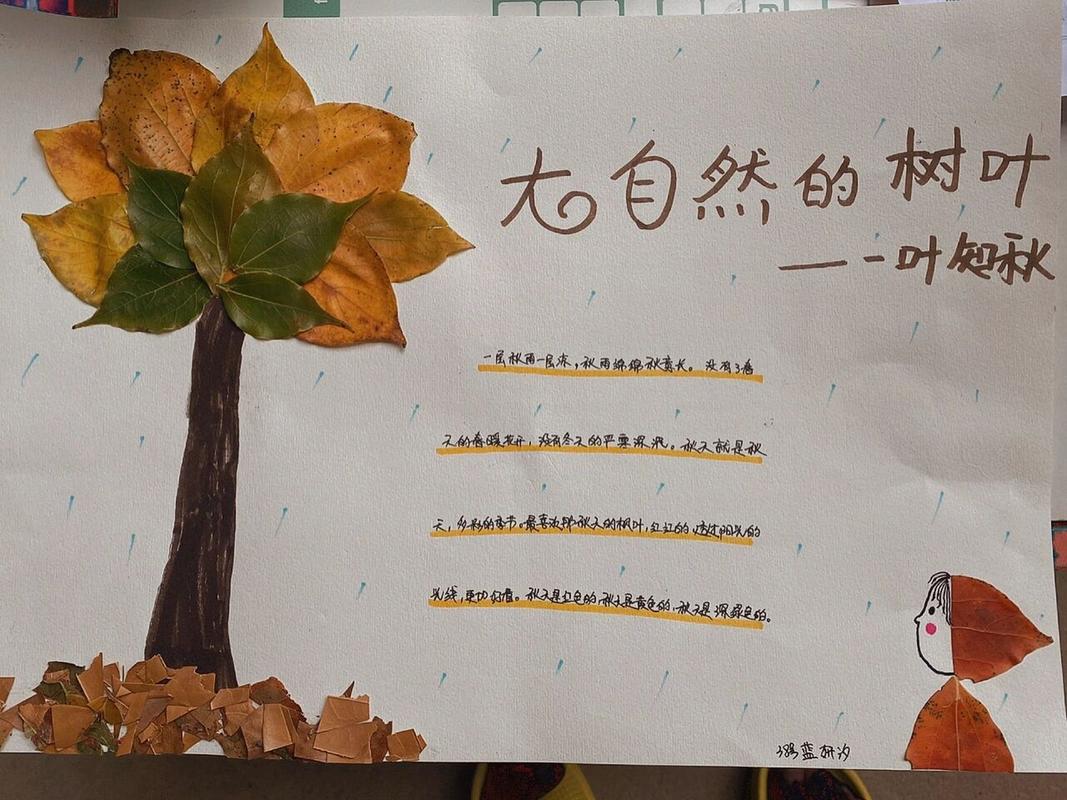 大自然的树叶
——一叶知秋
一层秋雨一层凉，秋雨绵绵秋意长。没有了春
天的春暖花开，没有冬天的严寒深沉。秋天就是秋
天，多彩的季节。最喜欢那秋天的枫叶，红红的，透过阳光的
光线，更加好看。秋天是红色的，秋天是黄色的，秋天是深绿色的。
蓝妍汐